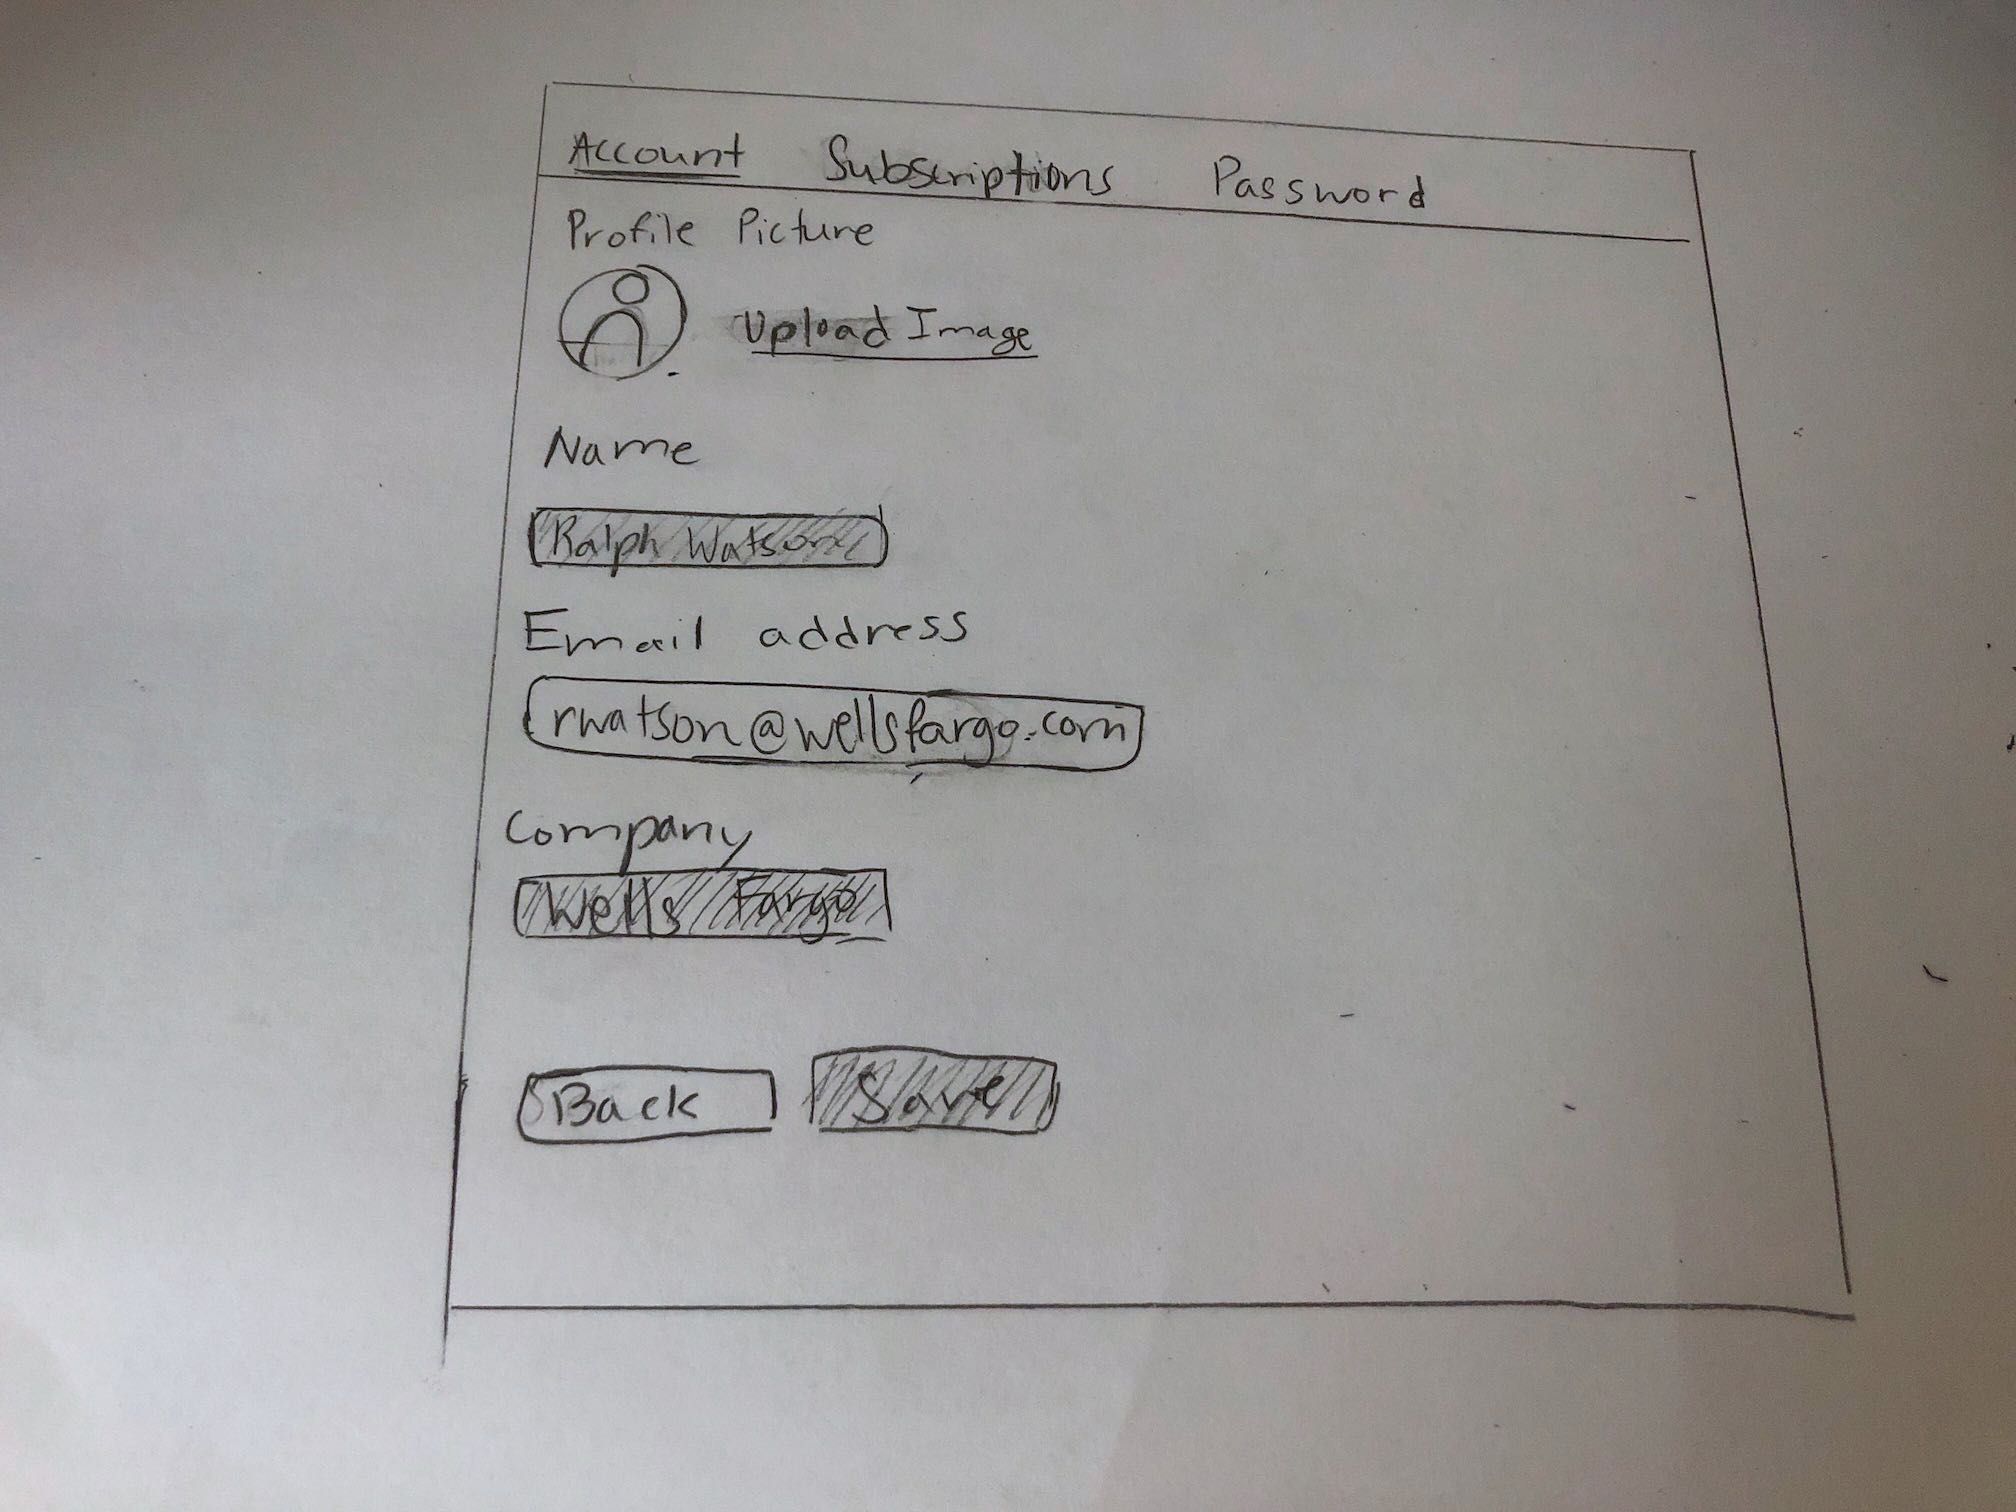 Account Subscriptions Password
Profile Picture
Upload Image
Name
Ralph Watson
Email address
rwatson@wellsfargo.com
Company
Wells Fargo
Back Save